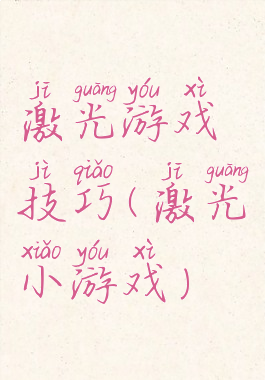 jī guāng yóu xì
激光游戏
jì qiǎo jī guāng
技巧(激光
xiǎo yóu xì
小游戏)